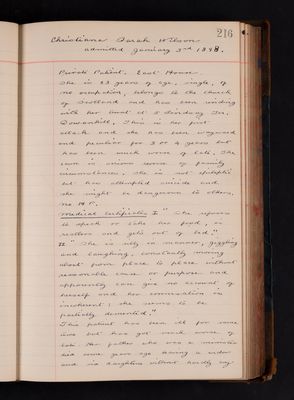 216
Christiana Sarah Wilson
admitted January 3rd 1898.
Private Patient. East House.
She is 33 years of age, single, of
no occupation, belongs to the Church
of Scotland and has been residing
with her aunt at 5 Ter,
Dowanhill. This is her first
attack and she has been wayward
and peculiar for 3 or 4 years but
has been much worse of late. The
cause is anxious worse of family
circumstances. She is not epileptic
but has attempted suicide and
she might be dangerous to others.
no H.P.
Medical Certificates I "She refuses
to speak or take her food, is
restless and gets out of bed."
II "She is silly in manner, giggling
and laughing, constantly moving
about from place to place without
reasonable cause or purpose and
apparently can give no account of
herself and her conversation is
incoherent; she seems to be
partially demented."
This patient has been ill for some
time but has got much worse of
late. Her father who was a minister
died some years ago leaving a widow
and six daughters without hardly any